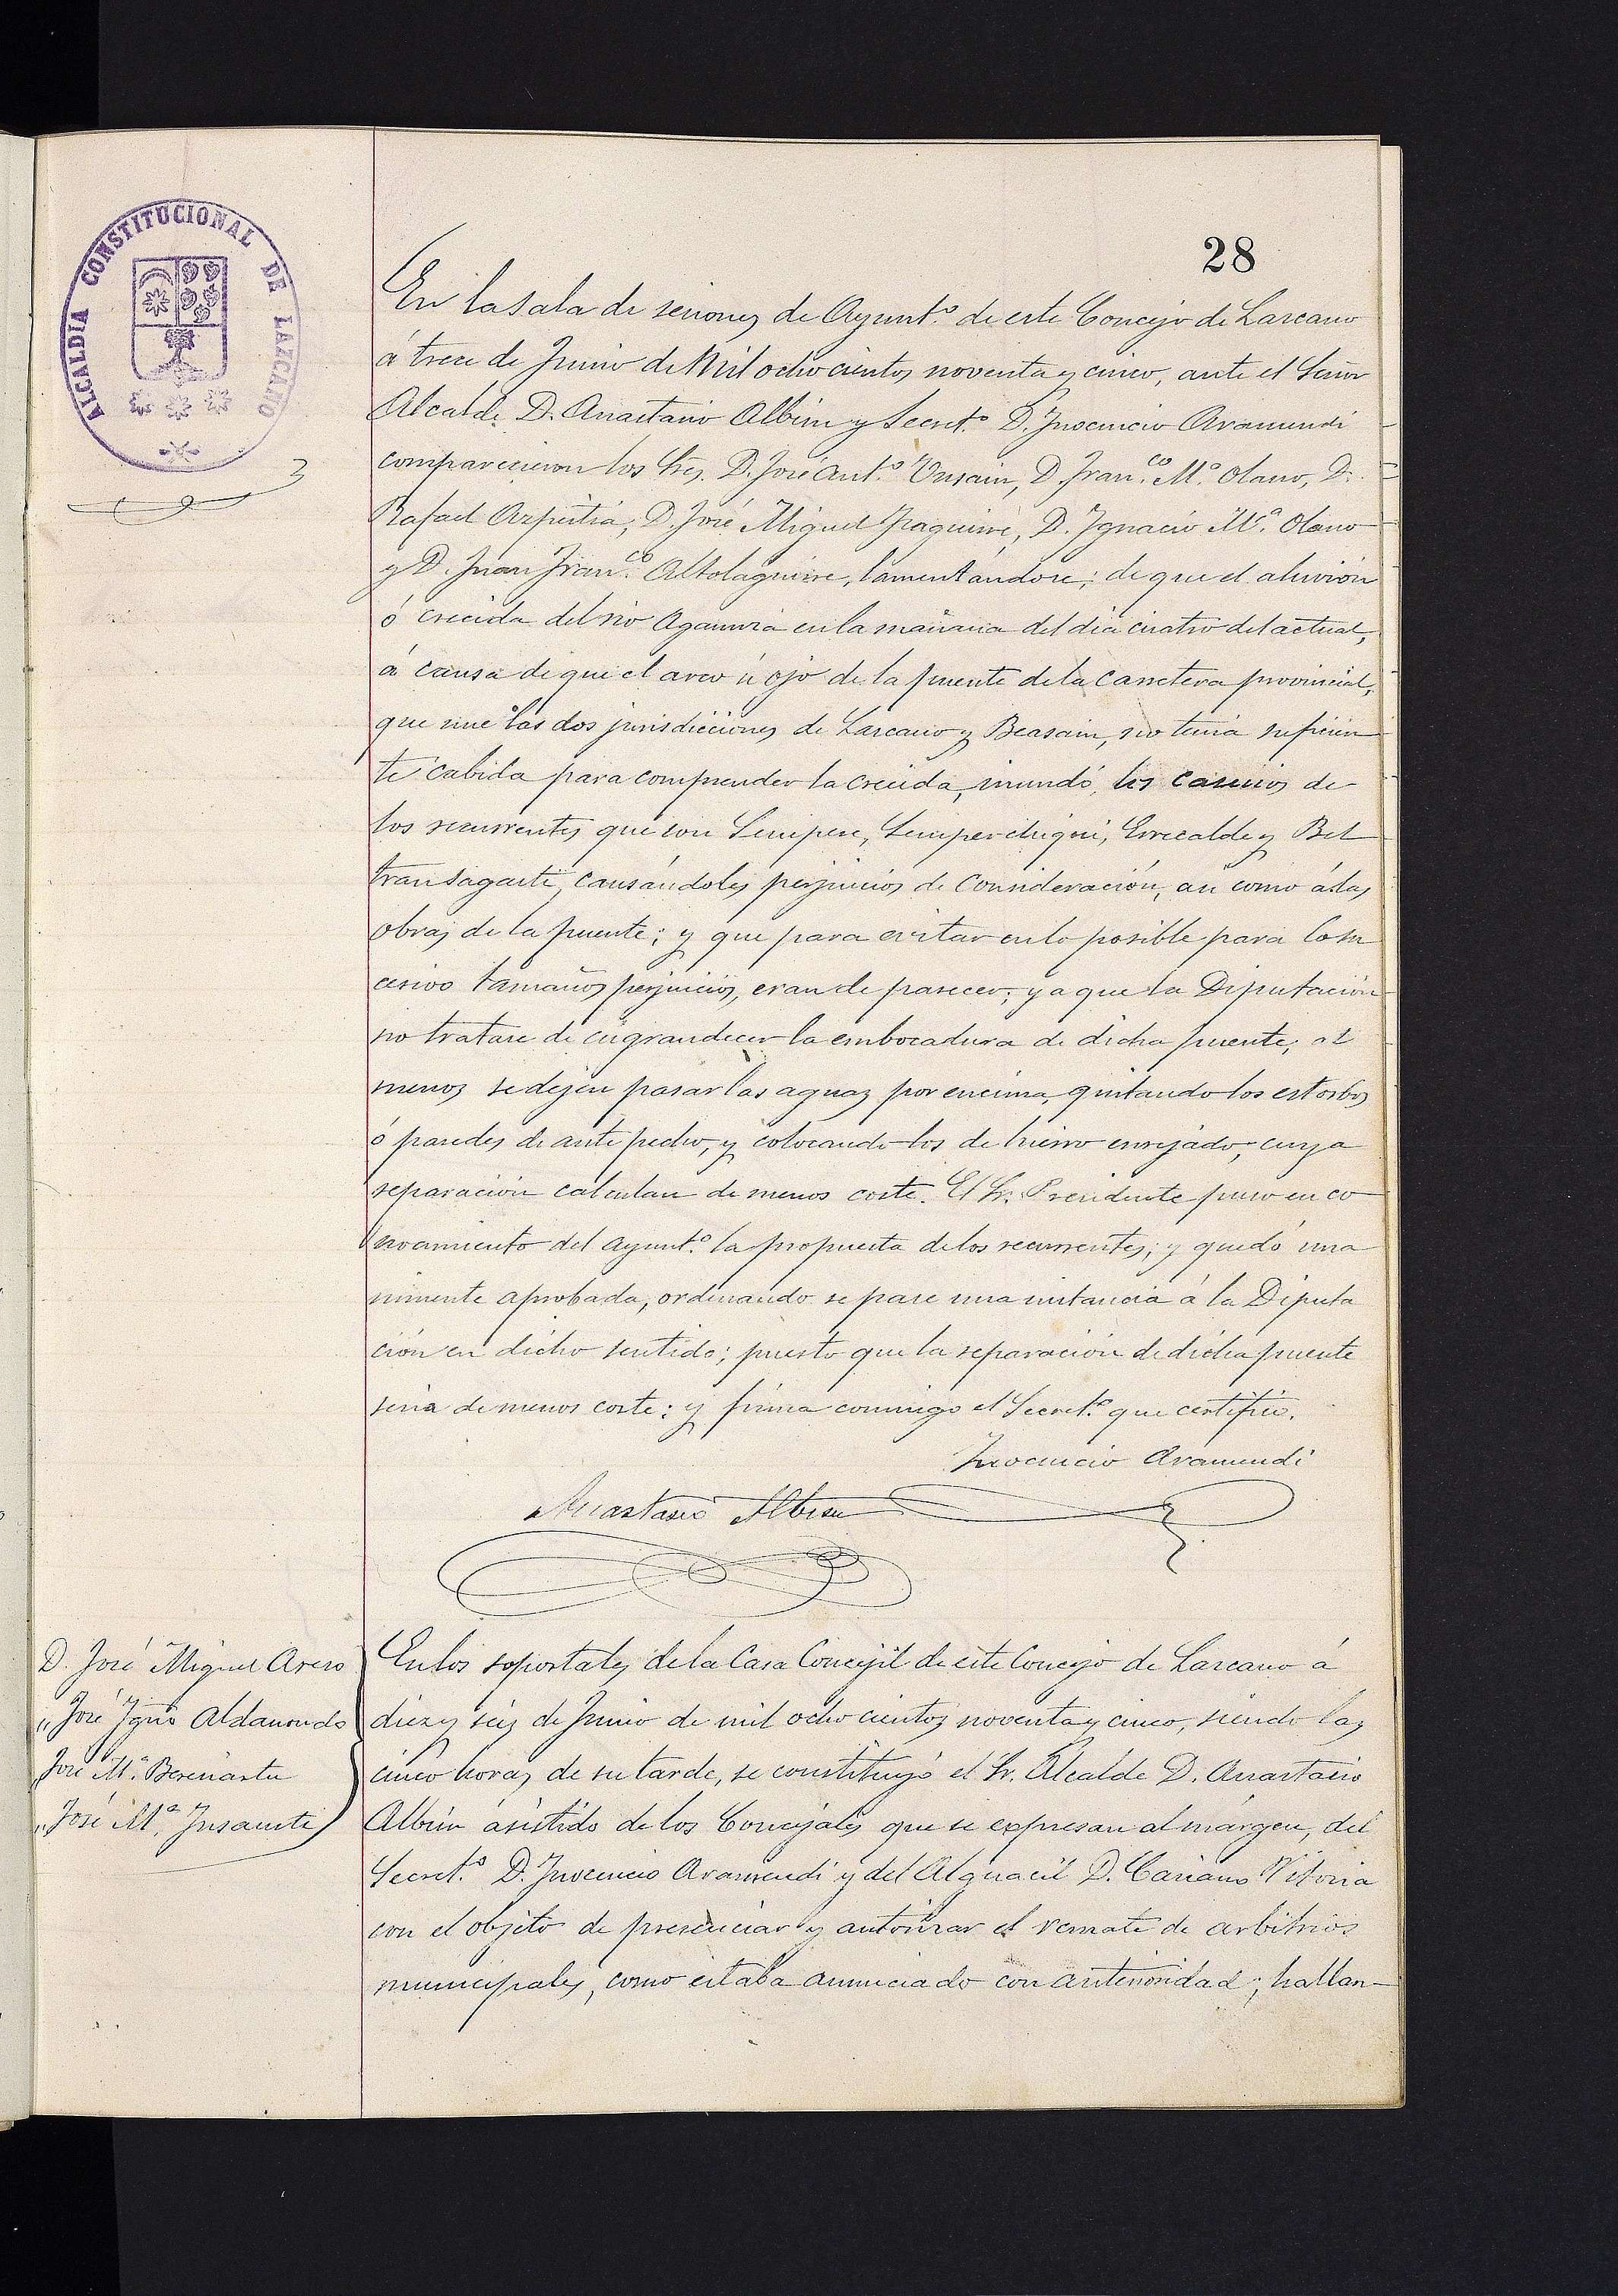 28
ALCALDÍA CONSTITUCIONAL DE LAZCANO
En la sala de sesiones de Ayunt.º de este Concejo de Lazcano
á trece de Junio de Mil ochocientos noventa y cinco, ante el Señor
Alcalde D. Anastasio Albisu y Secret.º D. Inocencio Aramendi
comparecieron los Sres. D. José Ant.º Unsain, D. Fran.co M.ª Olano, D.
Rafael Azpeitia, D. José Miguel Yraguirre, D. Ygnacio M.ª Olano
y D. Juan Fran.co Altolaguirre, lamentándose; de que el aluvión
ó crecida del rio Agaunza en la mañana del dia cuatro del actual,
á causa de que el arco ú ojo de la puente de la carretera provincial,
que une las dos jurisdicciones de Lazcano y Beasain, no tenia suficien
te cabida para comprender la crecida, inundó, los caserios de
los recurrentes que son Semper, Semperchiqui, Errecalde y Bel
transagasti, causándoles perjuicios de consideración, asi como á las
obras de la puente; y que para evitar en lo posible para lo su
cesivo tamaños perjuicios, eran de parecer; ya que la Diputación
no tratase de engrandecer la embocadura de dicha puente; al
menos se dejen pasar las aguas por encima, quitando los estorbos
ó paredes de ante pecho, y colocando los de hierro enrejado, cuya
reparación calculan de menos coste. El Sr. Presidente puso en co
nocimiento del Ayunt.º la propuesta de los recurrentes; y quedó una
nimente aprobada, ordenando se pase una instancia á la Diputa
ción en dicho sentido; puesto que la reparación de dicha puente
seria de menos coste: y firma conmigo el Secret.º que certifico.
Inocencio Aramendi
Anastasio Albisu
D. José Miguel Areso
" José Ygn.º Aldanondo
" José M.ª Berenastu
" José M.ª Insausti
En los soportales de la Casa Concejil de este Concejo de Lazcano á
diez y seis de Junio de mil ochocientos noventa y cinco, siendo las
cinco horas de su tarde, se constituyó el Sr. Alcalde D. Anastasio
Albisu asistido de los Concejales que se expresan al márgen, del
Secret.º D. Inocencio Aramendi y del Alguacil D. Vitoria
con el objeto de presenciar y autorizar el remate de arbitrios
municipales, como estaba anunciado con anterioridad; hallan-